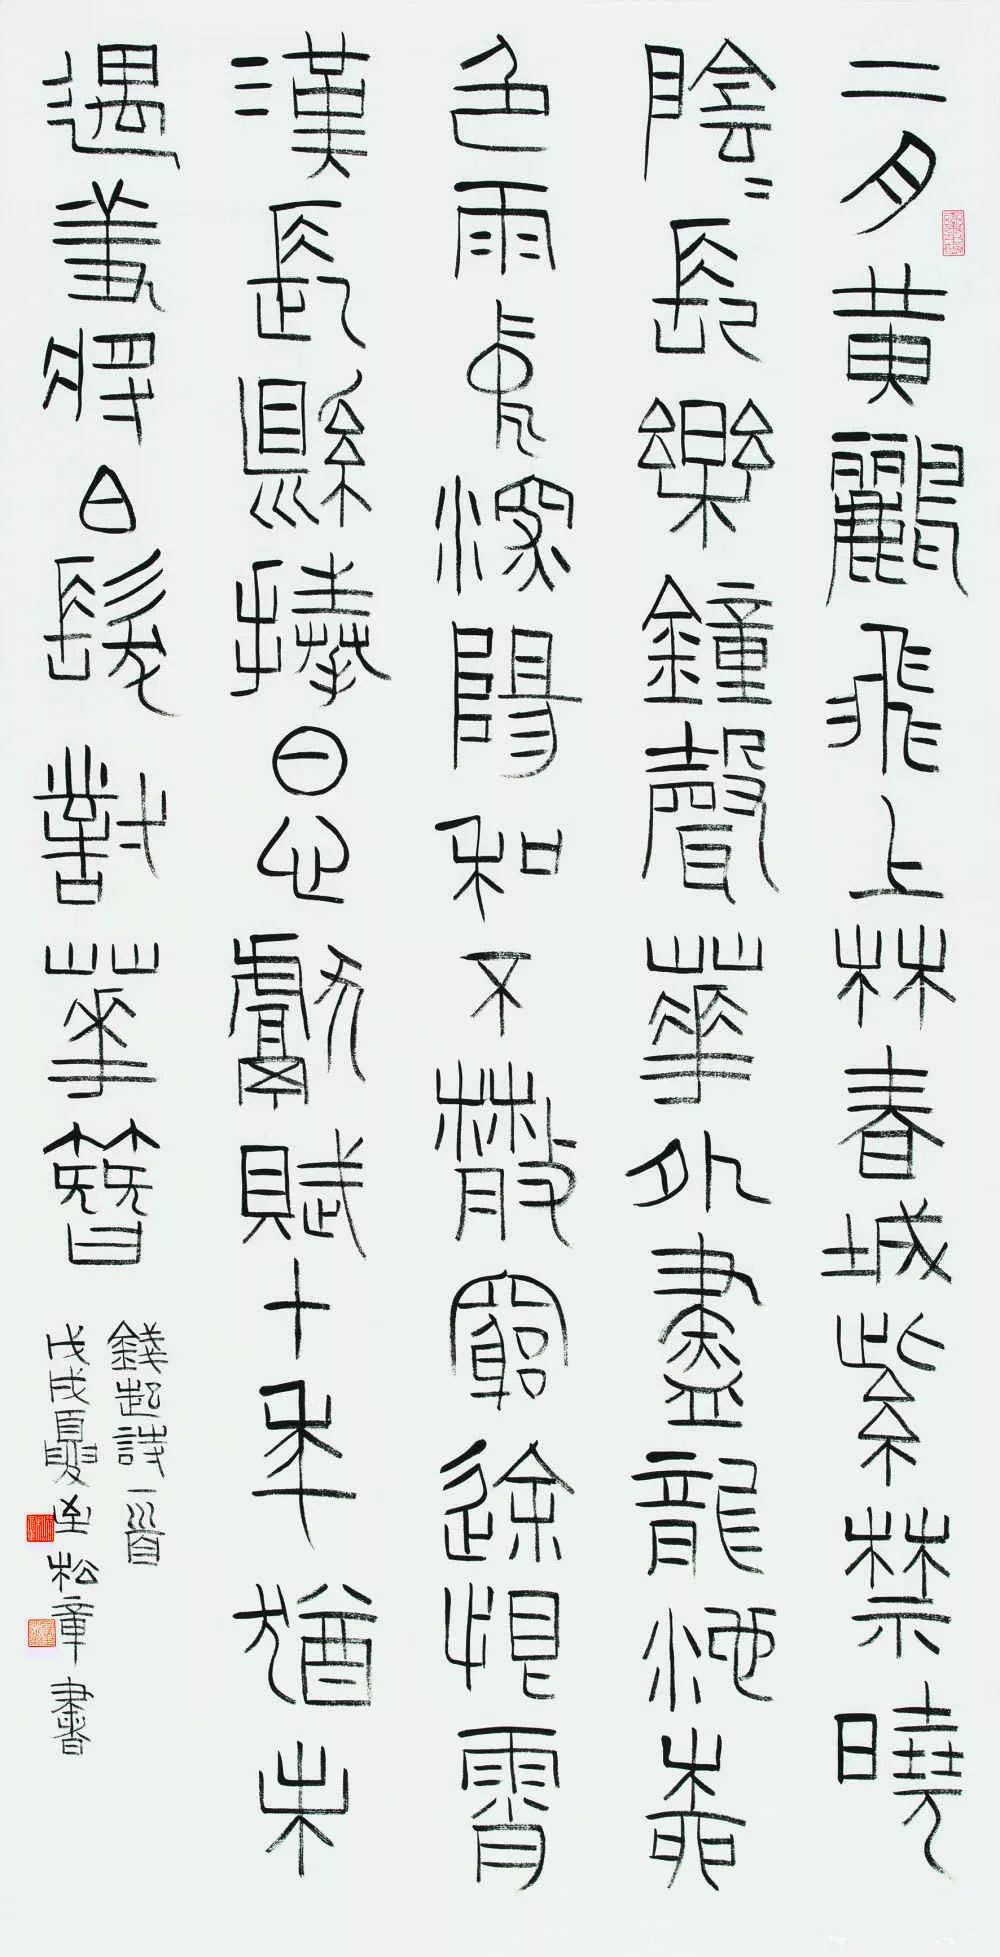 二月黃鸝飛上林春城紫禁曉
陰〻長樂鐘聲華外盡龍池柳
色雨中深陽和不散窮途恨霄
漢長縣捧日心獻賦十年猶未
遇羞將白髮對華簪
錢起詩一首
戊戌夏至松章書